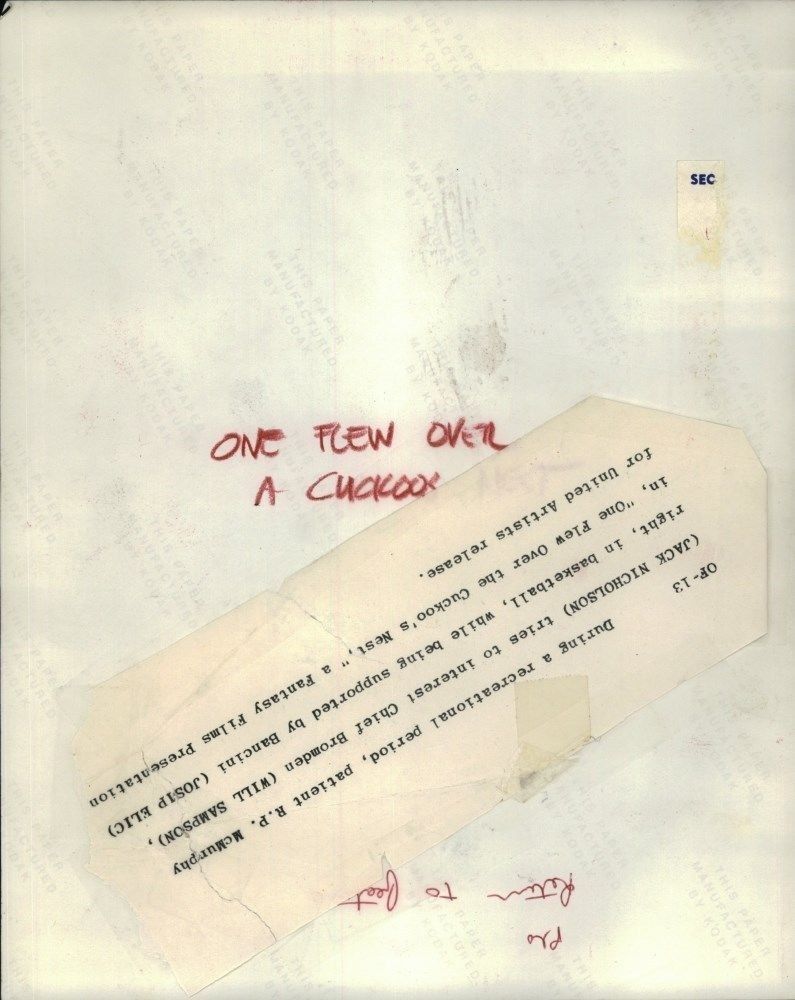 SEC
ONE FLEW OVER
A CUCKOO NEST
OF-13
During a recreational period, patient R.P. McMurphy
(JACK NICHOLSON) tries to interest Chief Bromden (WILL SAMPSON),
right, in basketball, while being supported by Bancini (JOSIP ELIC)
in, "One Flew Over the Cuckoo's Nest," a Fantasy Films Presentation
for United Artists release.
Return to
THIS PAPER
MANUFACTURED
BY KODAK